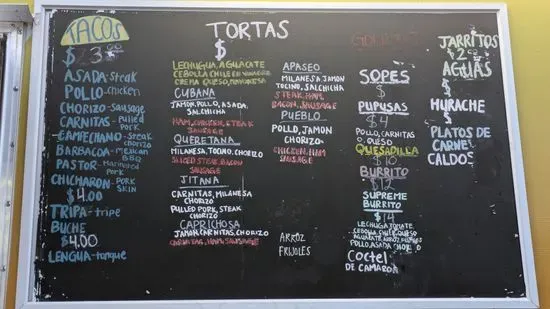 TACOS
$
ASADA-steak
POLLO-chicken
CHORIZO-Sausage
CARNITAS-Pulled Pork
CAMPECHANO-Steak chorizo
BARBACOA-mexican BBQ
PASTOR-Marinated pork
CHICHARON-PORK SKIN
$4.00
TRIPA-tripe
BUCHE
$4.00
LENGUA-tongue
TORTAS
$
LECHUGUA, AGUACATE
CEBOLLA CHILE EN VINAGRE
CREMA QUESO, MAYONESA
CUBANA
JAMON, POLLO, ASADA,
SALCHICHA
HAM, CHICKEN, STEAK
SAUSAGE
QUERETANA
MILANESA, TOCINO, CHORIZO
SLICED STEAK, BACON
SAUSAGE
JITANA
CARNITAS, MILANESA
CHORIZO
PULLED PORK, STEAK
CHORIZO
CAPRICHOSA
JAMON, CARNITAS, CHORIZO
CARNITAS, HAM, SAUSAGE
APASEO
MILANESA JAMON
TOCINO, SALCHICHA
STEAK, HAM
BACON, SAUSAGE
PUEBLO
POLLO, JAMON
CHORIZO
CHICKEN, HAM
SAUSAGE
ARROZ
FRIJOLES
SOPES
$
PUPUSAS
$4
POLLO, CARNITAS
O QUESO
QUESADILLA
$10
BURRITO
$12
SUPREME
BURRITO
$14
LECHUGA TOMATE
CEBOLLA, CHILE, QUESO
AGUACATE, ARROZ, FRIJOLES
POLLO, ASADA, CHORIZO
COCTEL
DE CAMARON
JARRITOS
$2
AGUAS
$
HURACHE
$
PLATOS DE
CARNE
CALDO